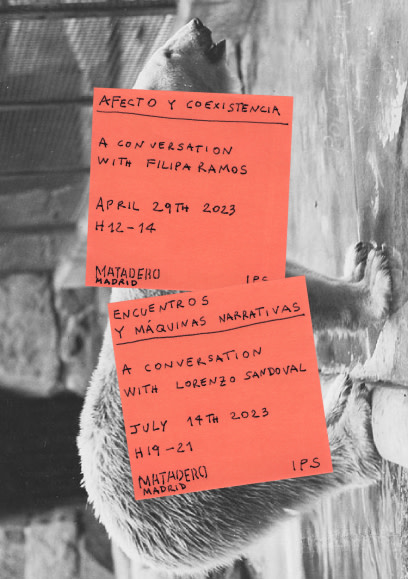 AFECTO Y COEXISTENCIA
A CONVERSATION
WITH FILIPA RAMOS
APRIL 29TH 2023
H12-14
MATADERO
MADRID
IPS
ENCUENTROS
Y MÁQUINAS NARRATIVAS
A CONVERSATION
WITH LORENZO SANDOVAL
JULY 14TH 2023
H19-21
MATADERO
MADRID
IPS